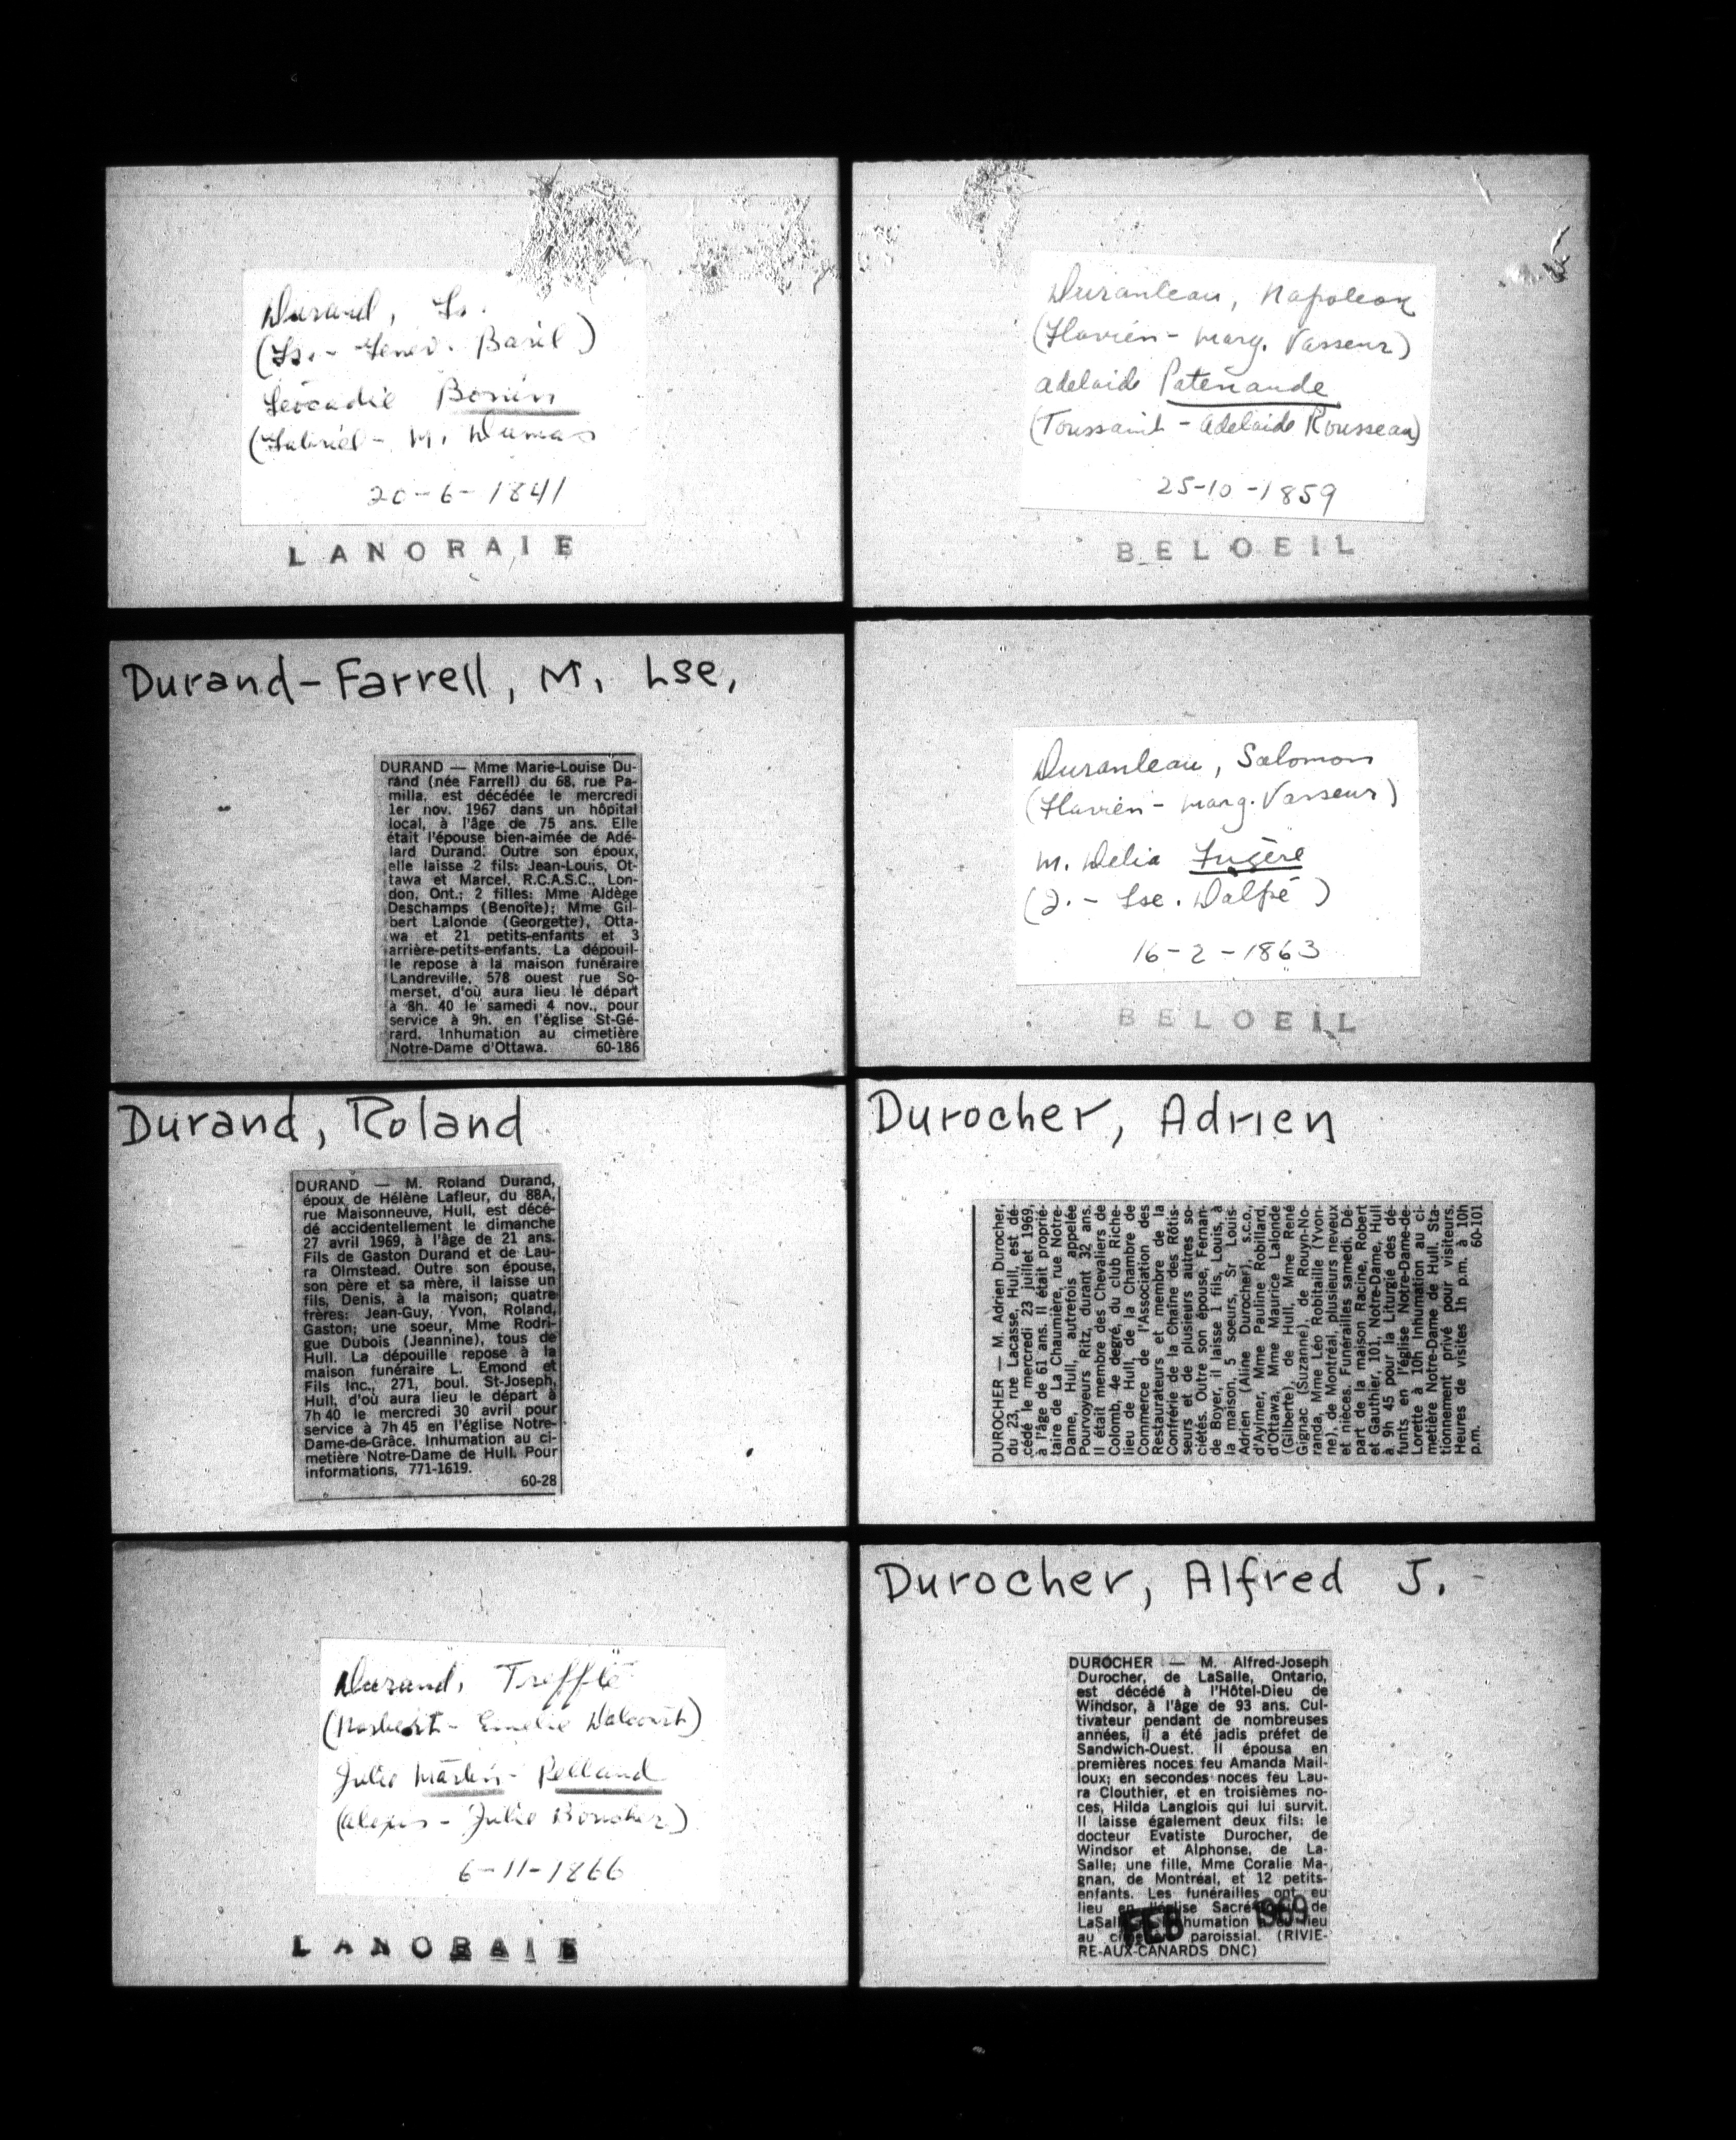 Durand, Ls.
(Ls. - Genev. Basil)
Léocadie Bonin
(Gabriel - M. Dumas
20-6-1841
LANORAIE
Durand-Farrell, M. Lse,
DURAND — Mme Marie-Louise Du-
rand (née Farrell) du 68, rue Pa-
milla, est décédée le mercredi
1er nov. 1967 dans un hôpital
local, à l'âge de 75 ans. Elle
était l'épouse bien-aimée de Adé-
lard Durand. Outre son époux,
elle laisse 2 fils: Jean-Louis, Ot-
tawa et Marcel, R.C.A.S.C., Lon-
don, Ont.; 2 filles: Mme Aldège
Deschamps (Benoîte); Mme Gil-
bert Lalonde (Georgette), Otta-
wa et 21 petits-enfants et 3
arrière-petits-enfants. La dépouil-
le repose à la maison funéraire
Landreville, 578 ouest rue So-
merset, d'où aura lieu le départ
à 8h. 40 le samedi 4 nov., pour
service à 9h. en l'église St-Gé-
rard. Inhumation au cimetière
Notre-Dame d'Ottawa. 60-186
Durand, Roland
DURAND — M. Roland Durand,
époux de Hélène Lafleur, du 88A,
rue Maisonneuve, Hull, est décé-
dé accidentellement le dimanche
27 avril 1969, à l'âge de 21 ans.
Fils de Gaston Durand et de Lau-
ra Olmstead. Outre son épouse,
son père et sa mère, il laisse un
fils, Denis, à la maison; quatre
frères: Jean-Guy, Yvon, Roland,
Gaston; une soeur, Mme Rodri-
gue Dubois (Jeannine), tous de
Hull. La dépouille repose à la
maison funéraire L. Emond et
Fils Inc., 271, boul. St-Joseph,
Hull, d'où aura lieu le départ à
7h 40 le mercredi 30 avril pour
service à 7h 45 en l'église Notre-
Dame-de-Grâce. Inhumation au ci-
metière Notre-Dame de Hull. Pour
informations, 771-1619.
60-28
Durand, Trefflé
(Norbert - Emelie Dalcourt)
Julie Martin - Pelland
(Alexis - Julie Boucher)
6-11-1866
LANORAIE
Duranleau, Napoleon
(Flavien - Marg. Vasseur)
Adelaide Patenaude
(Toussaint - Adelaide Rousseau)
25-10-1859
BELOEIL
Duranleau, Salomon
(Flavien - Marg. Vasseur)
M. Delia Fugère
(J. - Lse. Dalpé)
16-2-1863
BELOEIL
Durocher, Adrien
DUROCHER — M. Adrien Durocher,
du 23, rue Lacasse, Hull, est dé-
cédé le mercredi 23 juillet 1969,
à l'âge de 61 ans. Il était proprié-
taire de La Chaumière, rue Notre-
Dame, Hull, autrefois appelée
Pourvoyeurs Ritz, durant 32 ans.
Il était membre des Chevaliers de
Colomb, 4e degré, du club Riche-
lieu de Hull, de la Chambre de
Commerce de l'Association des
Restaurateurs et membre de la
Confrérie de la Chaîne des Rôtis-
seurs et de plusieurs autres so-
ciétés. Outre son épouse, Fernan-
de Boyer, il laisse 1 fils, Louis, à
la maison, 5 soeurs, Sr Louis-
Adrien (Aline Durocher), s.c.o.,
d'Aylmer, Mme Pauline Robillard,
d'Ottawa, Mme Maurice Lalonde
(Gilberte), de Hull, Mme René
Gignac (Suzanne), de Rouyn-No-
randa, Mme Léo Robitaille (Yvon-
ne), de Montréal, plusieurs neveux
et nièces. Funérailles samedi. Dé-
part de la maison Racine, Robert
et Gauthier, 101, Notre-Dame, Hull
à 9h 45 pour la Liturgie des dé-
funts en l'église Notre-Dame-de-
Lorette à 10h Inhumation au ci-
metière Notre-Dame de Hull. Sta-
tionnement privé pour visiteurs.
Heures de visites 1h p.m. à 10h
p.m. 60-101
Durocher, Alfred J.
DUROCHER — M. Alfred-Joseph
Durocher, de LaSalle, Ontario,
est décédé à l'Hôtel-Dieu de
Windsor, à l'âge de 93 ans. Cul-
tivateur pendant de nombreuses
années, il a été jadis préfet de
Sandwich-Ouest. Il épousa en
premières noces feu Amanda Mail-
loux; en secondes noces feu Lau-
ra Clouthier, et en troisièmes no-
ces, Hilda Langlois qui lui survit.
Il laisse également deux fils: le
docteur Evatiste Durocher, de
Windsor et Alphonse, de La-
Salle; une fille, Mme Coralie Ma-
gnan, de Montréal, et 12 petits-
enfants. Les funérailles ont eu
lieu en l'église de
LaSalle lieu
au paroissial. (RIVIE-
RE-AUX-CANARDS DNC)
FEB 1969